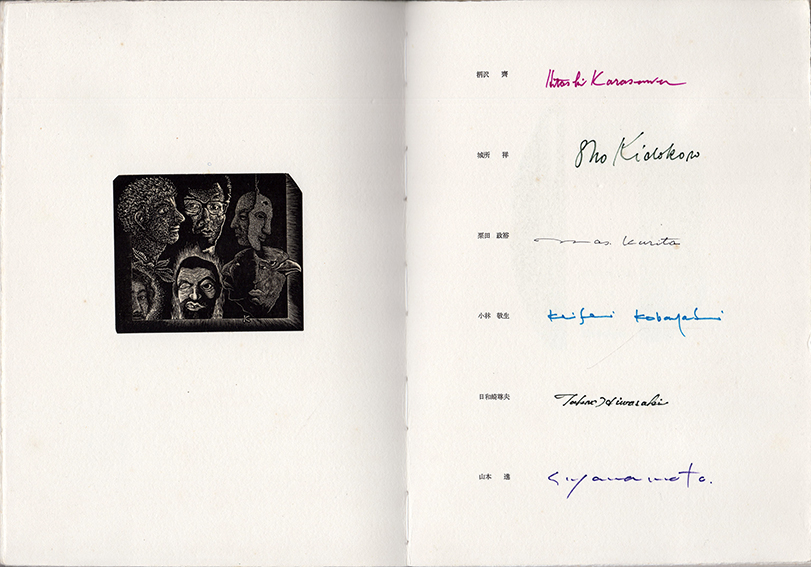 柄沢 齊
Hitoshi Karasawa
城所 祥
Sho Kidokoro
栗田 政裕
Mas. Kurita
小林 敬生
Keisei Kobayashi
日和崎尊夫
Takao Hiwasaki
山本 進
S. yamamoto.
K